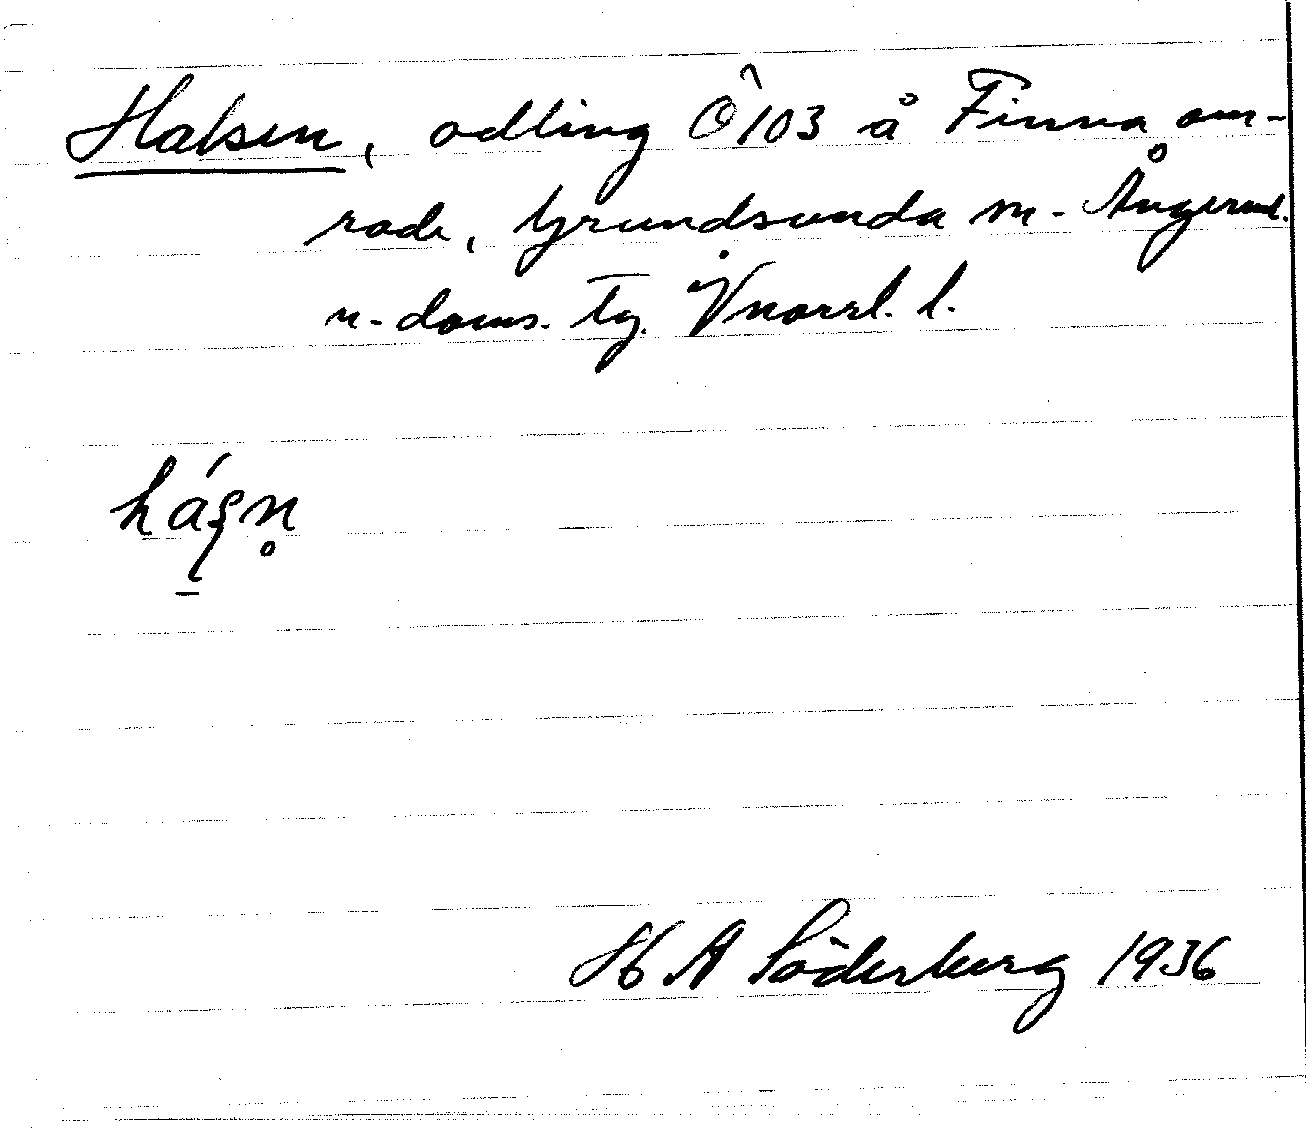 Halsen, odling Ö 103 å Finna om-
råde, Grundsunda sn. Ångerml.
n. doms. tg. Vnorrl. l.
H A Söderberg 1936